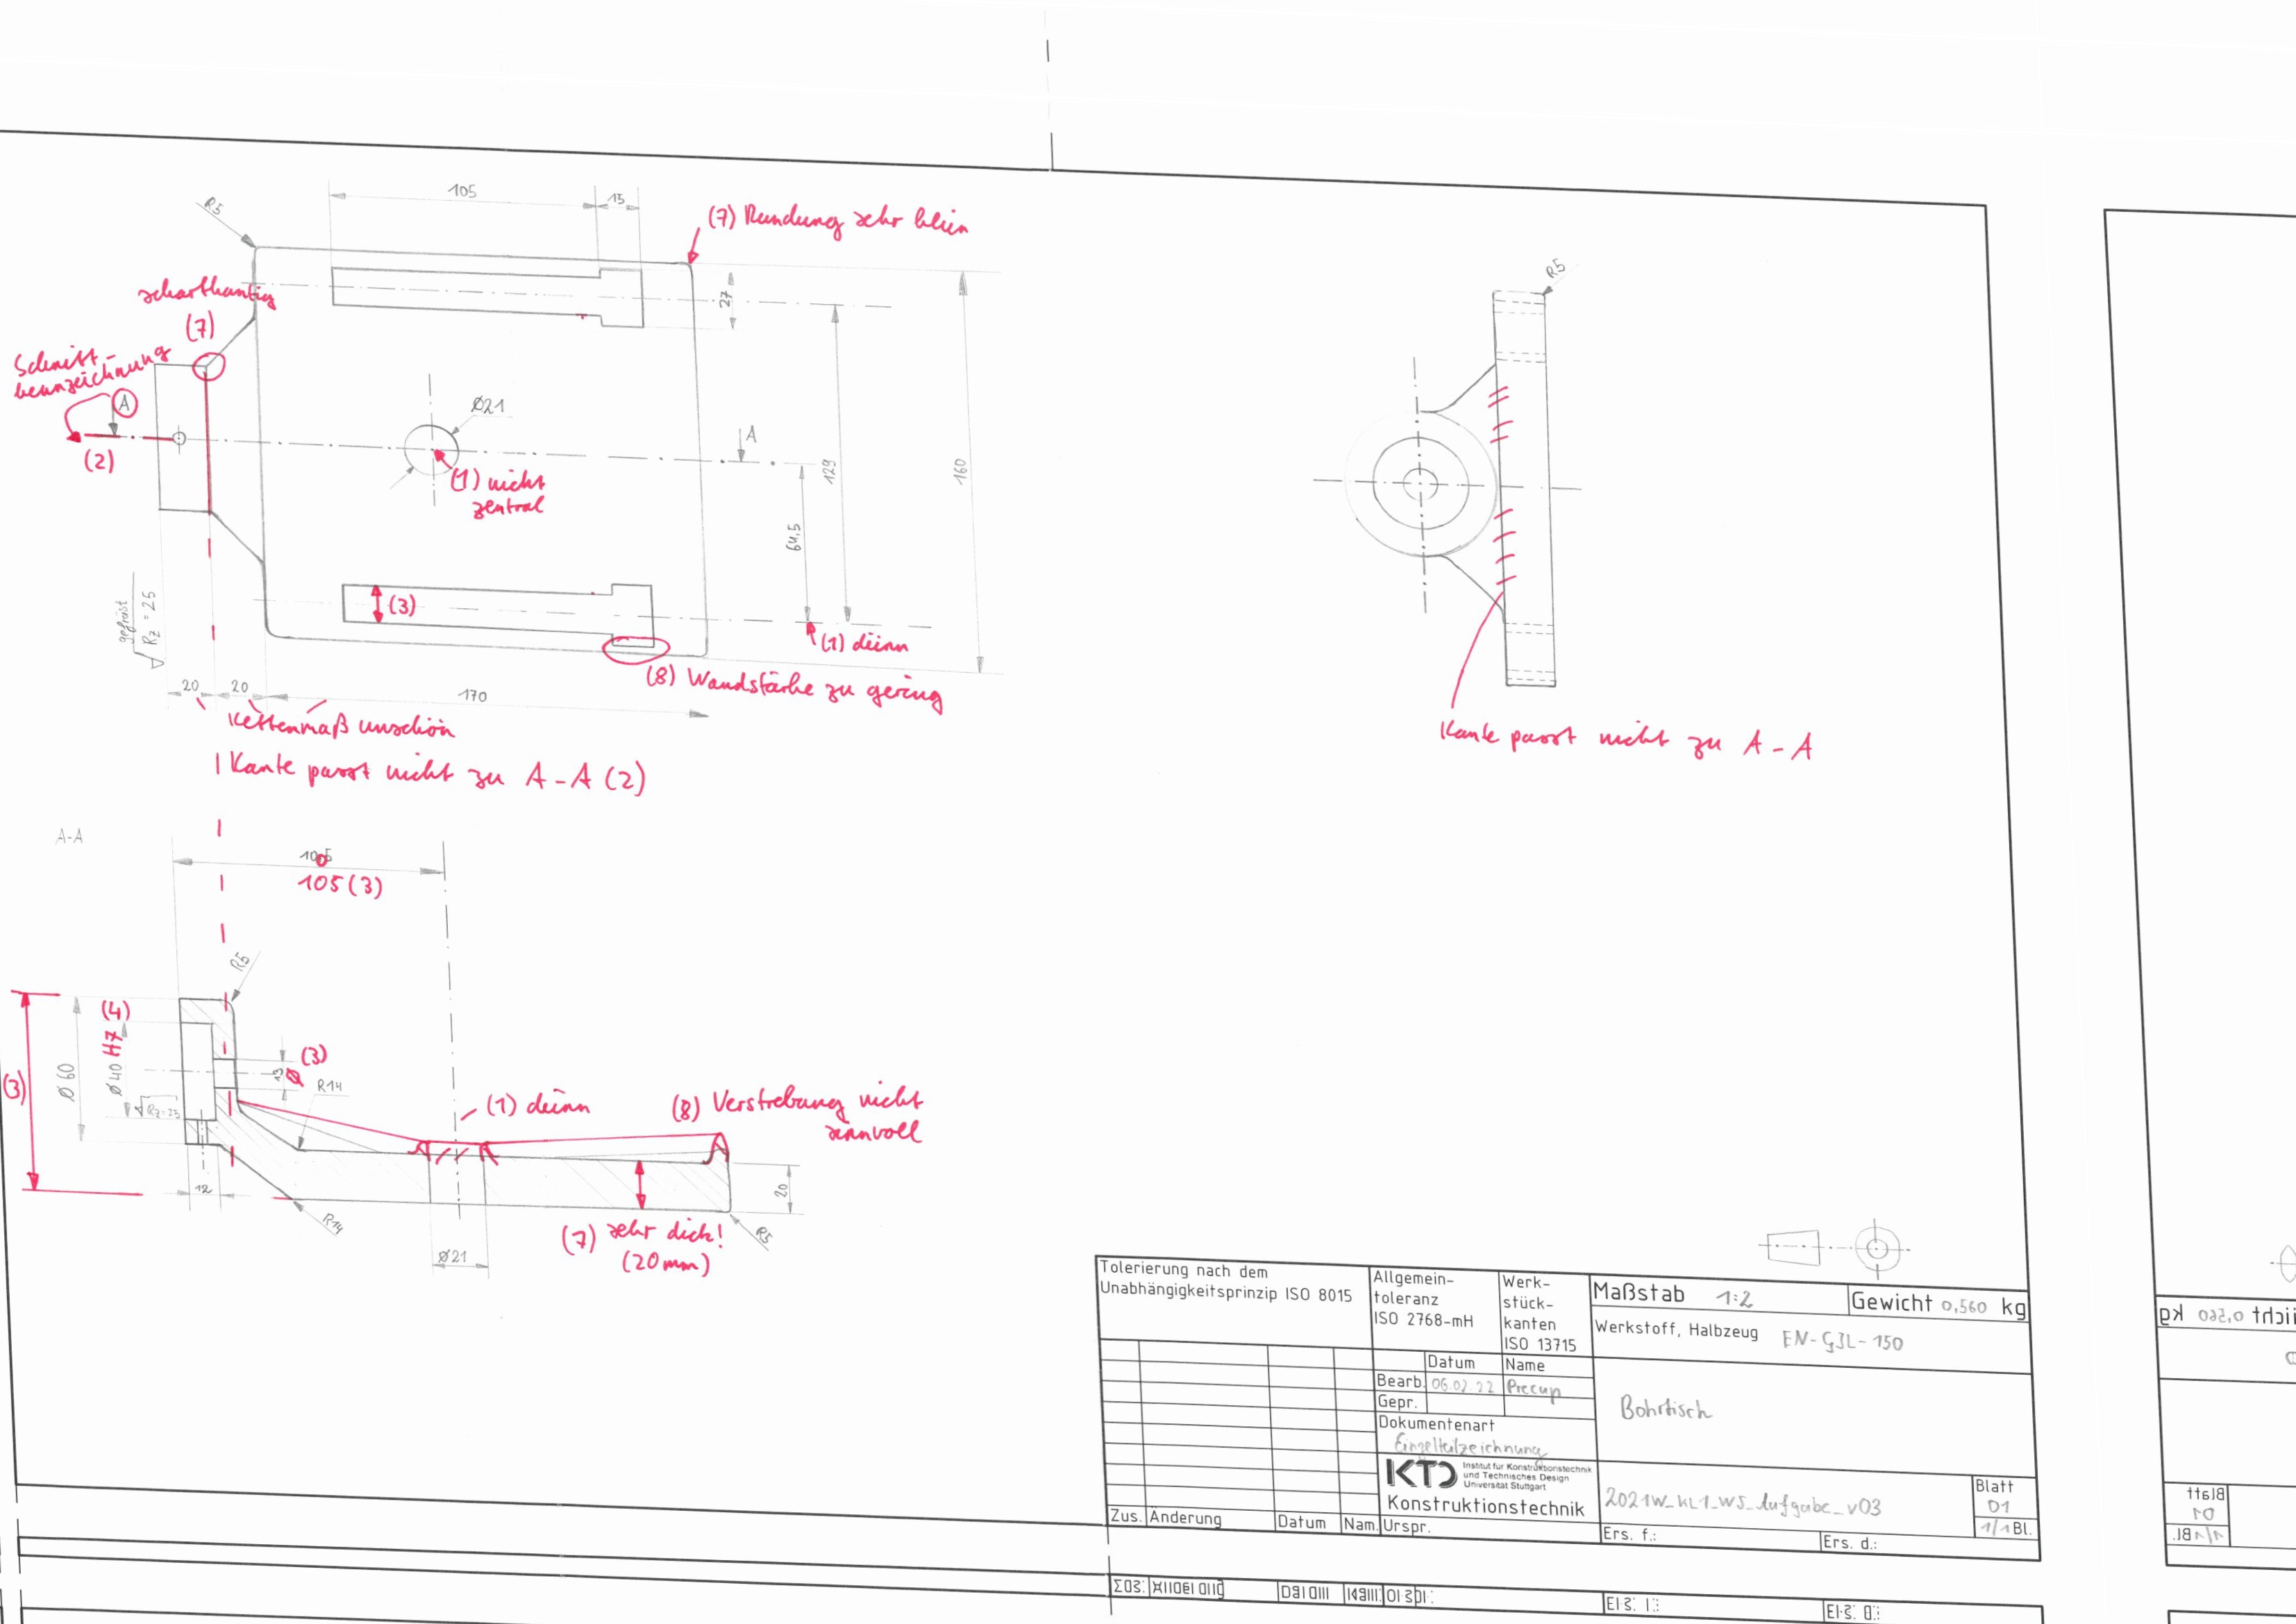 105
15
R5
(7) Rundung sehr klein
R5
scharfkantig
(7)
27
Schnitt-
kennzeichnung
A
(2)
Ø21
A
(1) nicht
zentral
129
160
64,5
(3)
(1) dünn
(8) Wandstärke zu gering
gefräst
Rz = 25
20
20
170
Kettenmaß unschön
Kante passt nicht zu A-A (2)
Kante passt nicht zu A-A
A-A
105 (3)
R5
(3)
Ø60
(4)
Ø40 H7
Rz=25
(3)
13 Ø
R14
(1) dünn
(8) Verstrebung nicht
sinnvoll
12
R14
20
Ø21
(7) sehr dick!
(20mm)
R5
Tolerierung nach dem
Unabhängigkeitsprinzip ISO 8015
Allgemein-
toleranz
ISO 2768-mH
Werk-
stück-
kanten
ISO 13715
Maßstab 1:2
Gewicht 0,560 kg
Werkstoff, Halbzeug EN-GJL-150
Datum
Name
Bearb. 06.02.22 Precup
Gepr.
Bohrtisch
Dokumentenart
Einzelteilzeichnung
KTD
Institut für Konstruktionstechnik
und Technisches Design
Universität Stuttgart
Konstruktionstechnik
2021W_KL1_WS_Aufgabe_v03
Blatt
01
1/1 Bl.
Zus. Änderung
Datum
Nam.
Urspr.
Ers. f.:
Ers. d.: